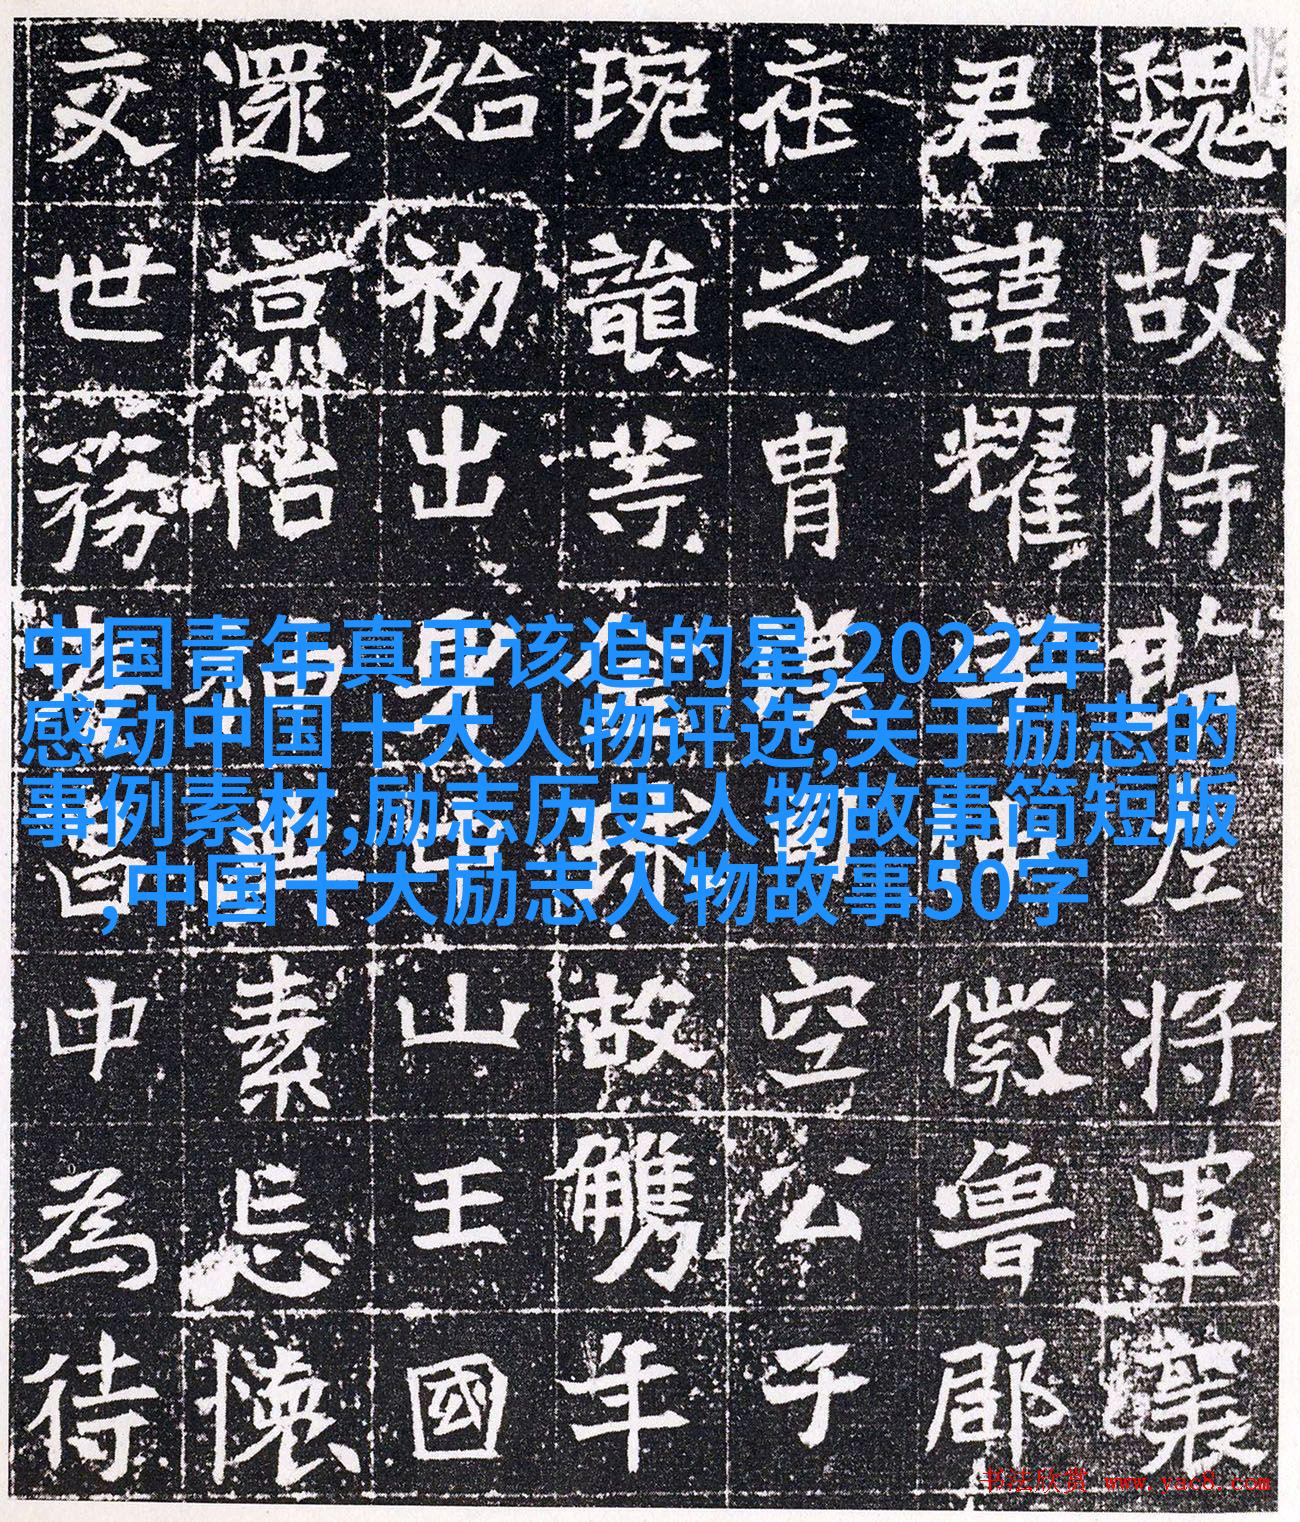 中国青年真正该追的星,2022年
感动中国十大人物评选,关于励志的
事例素材,励志历史人物故事简短版
,中国十大励志人物故事50字
魏故持左將軍襄
君諱耀字徽魯郡
在之胄漢司空公子
琬韻故觿年
始初出身山王國
怡典素忘懷
交世務中為待
书法欣赏 www.yac8.com